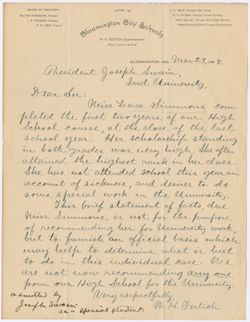 Bloomington City Schools
W. H. FERTICH, Superintendent
BLOOMINGTON, IND. Mar 29, 
President Joseph Swain,
Ind. University,
Dear Sir:
Miss Lena Simmons com-
pleted the first two years of our High
School course, at the close of the last
school year. Her scholarship standing
in both grades was very high. She often
attained the highest rank in her class.
She has not attended school this year on
account of sickness, and desires to do
some special work in the University.
This brief statement of facts, due
Miss Simmons, is not for the purpose
of recommending her for University work,
but to furnish an official basis which
may help to determine what is best
to do in this individual case. We
are not now recommending any one
from our High School for the University.
Very respectfully,
W. H. Fertich
admitted by
Joseph Swain
as a special student.